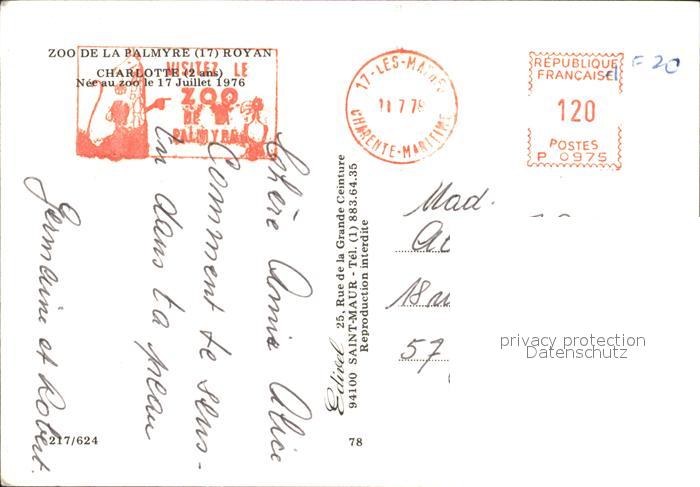 ZOO DE LA PALMYRE (17) ROYAN
CHARLOTTE (2 ans)
Née au zoo le 17 Juillet 1976
VISITEZ LE
ZOO
DE LA
PALMYRE
17-LES-MATHES
11 7 78
CHARENTE-MARITIME
RÉPUBLIQUE
FRANÇAISE
120
POSTES
P 0975
F 20
Chère Amie Alice
Comment te sens-
tu dans ta peau
Germaine et Robert.
217/624
Edivel 25, Rue de la Grande Ceinture
94100 SAINT-MAUR - Tél. (1) 883.64.35
Reproduction interdite
78
Mad.
18
57
privacy protection
Datenschutz